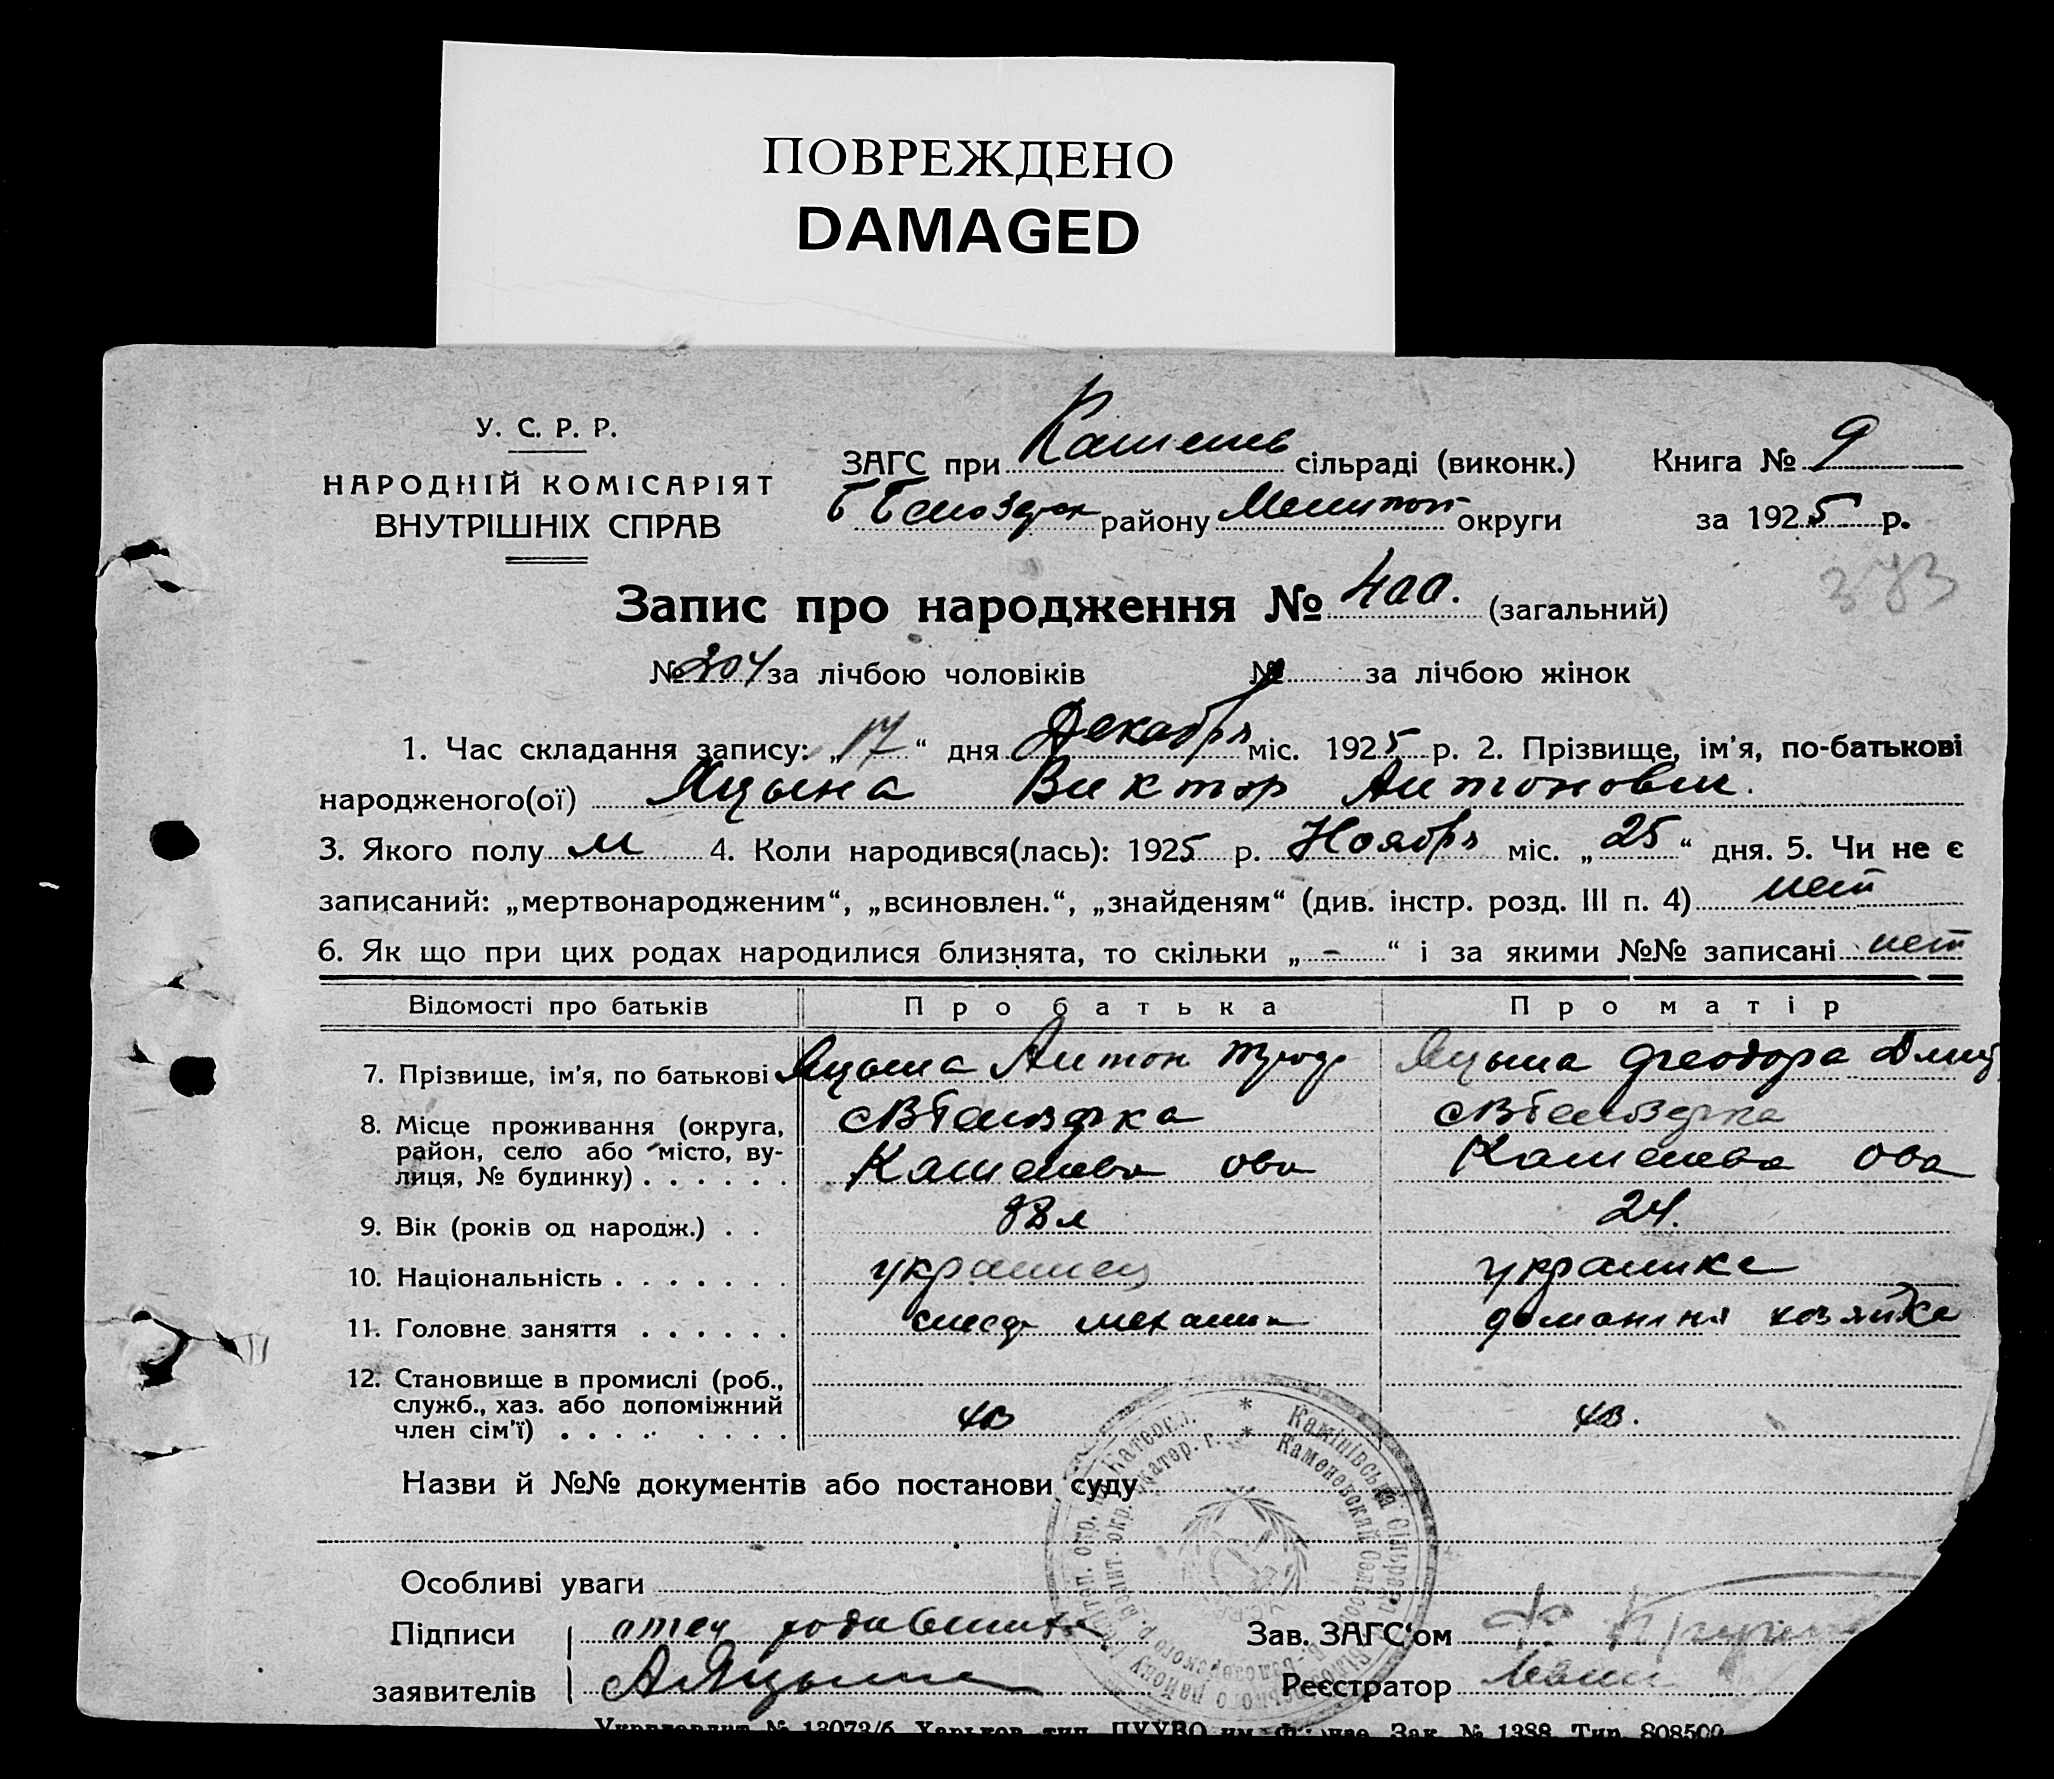 ПОВРЕЖДЕНО
DAMAGED
У. С. Р. Р.
НАРОДНІЙ КОМІСАРІЯТ
ВНУТРІШНІХ СПРАВ
ЗАГС при Каменев сільраді (виконк.)
району Мелитоп округи
Книга № 9
за 1925 р.
373
Запис про народження № 400. (загальний)
№ 204 за лічбою чоловіків № за лічбою жінок
1. Час складання запису: „17“ дня Декабря міс. 1925 р. 2. Прізвище, ім'я, по-батькові
народженого(ої) Яцына Виктор Антонович.
3. Якого полу м 4. Коли народився(лась): 1925 р. Ноября міс. „25“ дня. 5. Чи не є
записаний: „мертвонародженим“, „всиновлен.“, „знайденям“ (див. інстр. розд. III п. 4) нет
6. Як що при цих родах народилися близнята, то скільки „-“ і за якими №№ записані нет
Відомості про батьків Про батька Про матір
7. Прізвище, ім'я, по батькові Яцына Антон Яцына Феодора Дмит
8. Місце проживання (округа,
район, село або місто, ву-
лиця, № будинку) . . . . . . Каменева Каменева
9. Вік (років од народж.) . . 24.
10. Національність . . . . . . . украинец украинка
11. Головне заняття . . . . . . домашня хозяйка
12. Становище в промислі (роб.,
служб., хаз. або допоміжний
член сім'ї) . . . . . . . . .
Назви й №№ документів або постанови суду
Камінівська Сільрада
Каменевский Сельсовет
Особливі уваги
Підписи отец
Зав. ЗАГС'ом
заявителів АЯцына
Реєстратор
Укрголовліт № 13073/б. Харьков, тип. ПУУВО им. Фрунзе. Зак. № 1388. Тир. 808500